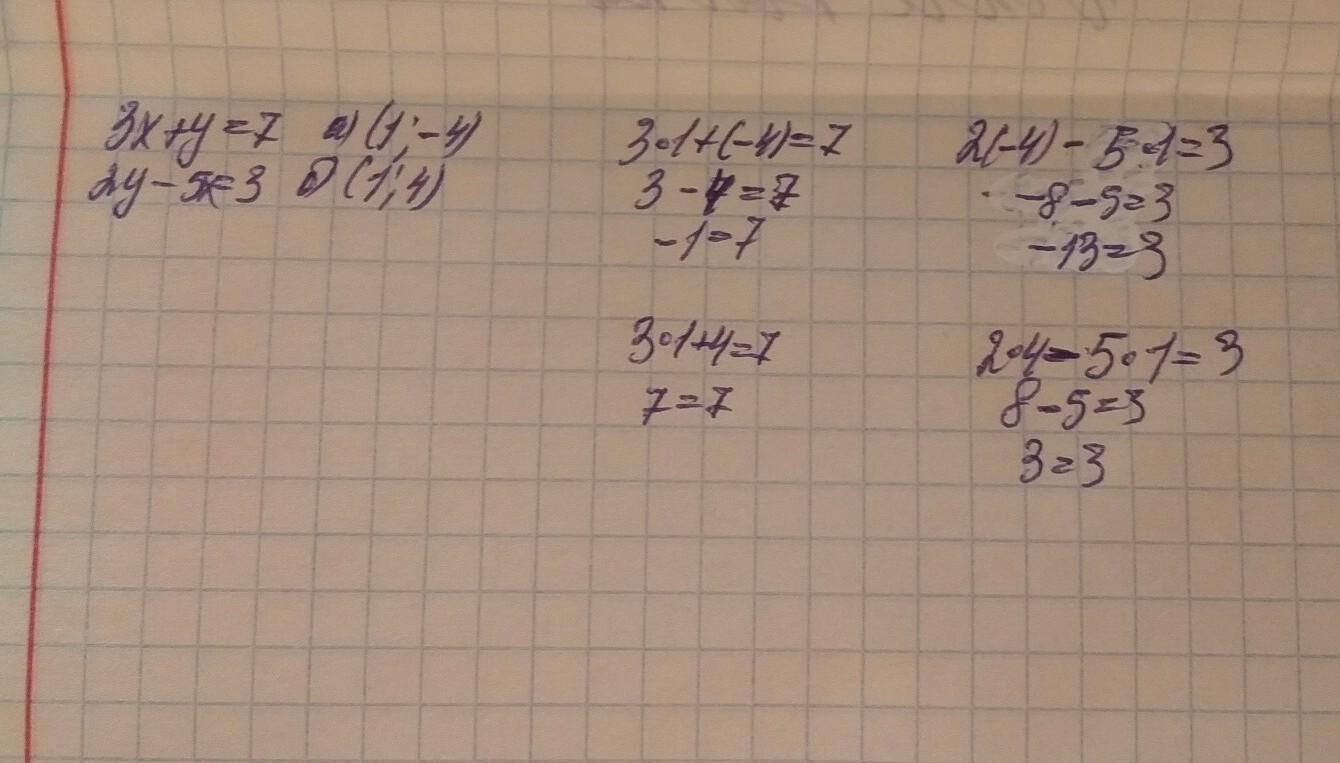 3x+y=7 а) (1; -4)
2y-5x=3 б) (1; 4)
3∘1+(-4)=7
3-4=7
-1=7
2(-4)-5∘1=3
-8-5=3
-13=3
3∘1+4=7
7=7
2∘4-5∘1=3
8-5=3
3=3